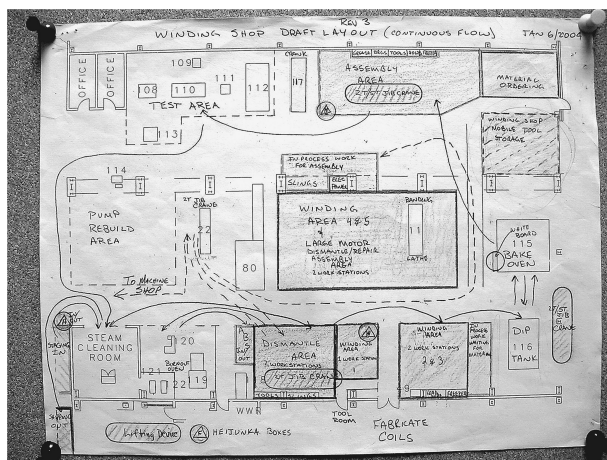 REV 3
WINDING SHOP DRAFT LAYOUT (CONTINUOUS FLOW)
JAN 6/2004
OFFICE
OFFICE
109
108
110
111
112
TEST AREA
113
CRANK
117
ASSEMBLY
AREA
2T/ST JIB CRANE
MATERIAL
ORDERING
WINDING SHOP
MOBILE TOOL
STORAGE
114
PUMP
REBUILD
AREA
2T JIB
CRANE
22
80
IN PROCESS WORK
FOR ASSEMBLY
SLINGS
ELEC
PANEL
WINDING
AREA 4&5
LARGE MOTOR
DISMANTLE/REPAIR
ASSEMBLY
AREA
2 WORK STATIONS
BANDING
11
LATHE
WHITE
BOARD
115
BAKE
OVEN
TO MACHINE
SHOP
STAGING
IN
STEAM
CLEANING
ROOM
120
BURNOUT
OVEN
121
122
119
IN/OUT
DISMANTLE
AREA
2 WORKSTATIONS
JIB CRANE
WINDING
AREA
1 WORK STATION
WINDING
AREA
2 WORK STATIONS
2 & 3
49
IN
PROCESS
WORK
WAITING
FOR
MATERIAL
DIP
116
TANK
2T/ST
JIB
CRANE
OUT
WWF
TOOL
ROOM
FABRICATE
COILS
Lifting Device
HEIJUNKA BOXES